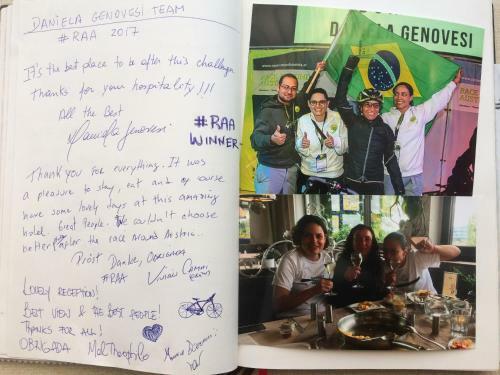 DANIELA GENOVESI TEAM
#RAA 2017
It's the best place to be after this challenge
Thanks for your hospitality!!!
All the Best
Daniela Genovesi
#RAA
WINNER
Thank you for everything. It was
a pleasure to stay, eat and of course
have some lovely days at this amazing
hotel. Great People. We couldn't choose
better after the race around Austria..
Pröst Danke, OBRIGADA
#RAA
LOVELY RECEPTION!
BEST VIEW & THE BEST PEOPLE!
THANKS FOR ALL!
OBRIGADA
DANIELA GENOVESI
RACE
AUST